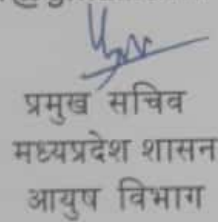 प्रमुख सचिव
मध्यप्रदेश शासन
आयुष विभाग